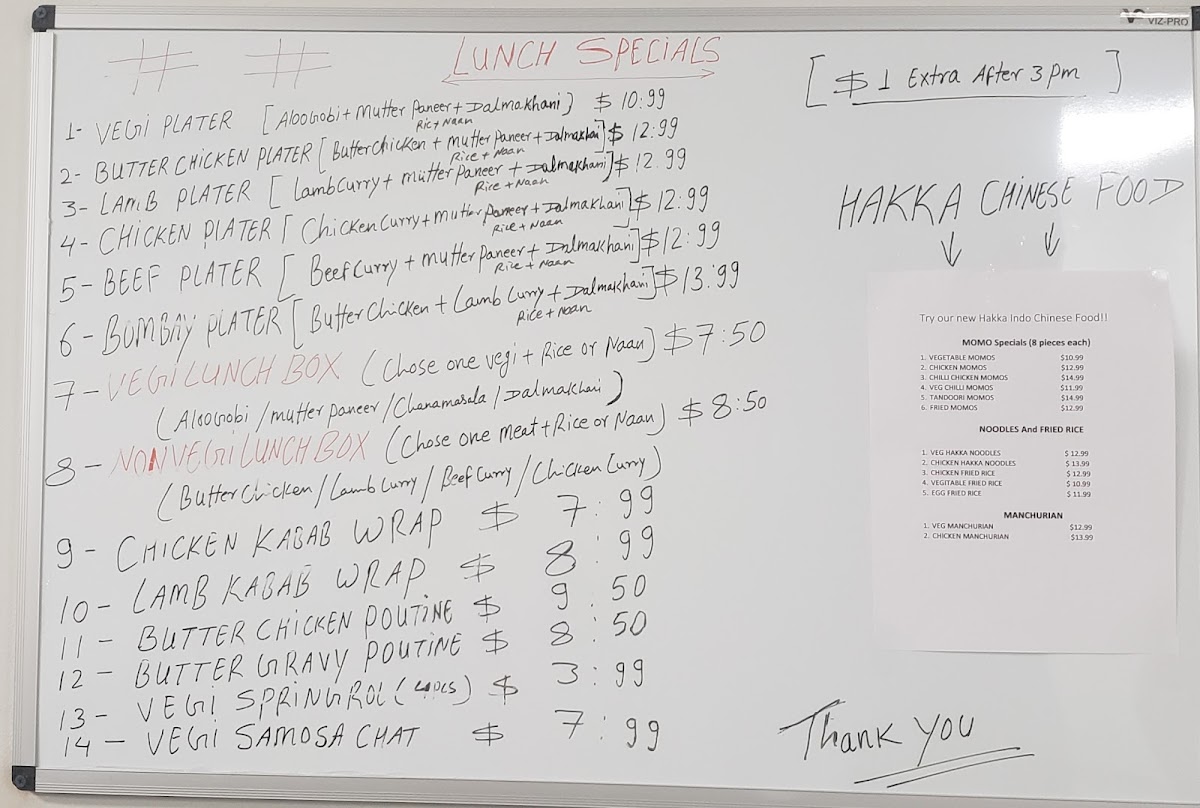 VIZ-PRO
# # LUNCH SPECIALS
[ $1 Extra After 3 pm ]
1- VEGI PLATER [AlooGobi + Mutter Paneer + Dalmakhani] $ 10:99
Ric + Naan
2- BUTTER CHICKEN PLATER [Butter Chicken + mutter Paneer + Dalmakhai] $ 12:99
Rice + Naan
3- LAMB PLATER [Lamb Curry + mutter Paneer + Dalmakhani] $ 12.99
Rice + Naan
4- CHICKEN PLATER [Chicken Curry + mutter Paneer + Dalmakhani] $ 12:99
Rice + Naan
5- BEEF PLATER [Beef Curry + mutter Paneer + Dalmakhani] $ 12:99
Rice + Naan
6- BOMBAY PLATER [Butter Chicken + Lamb Curry + Dalmakhani] $ 13:99
Rice + Naan
7- VEGI LUNCH BOX (Chose one vegi + Rice or Naan) $ 7:50
(AlooGobi / mutter paneer / Chanamasala / Dalmakhani)
8- NONVEGI LUNCH BOX (Chose one meat + Rice or Naan) $ 8:50
(Butter Chicken / Lamb Curry / Beef Curry / Chicken Curry)
9- CHICKEN KABAB WRAP $ 7:99
10- LAMB KABAB WRAP $ 8:99
11- BUTTER CHICKEN POUTINE $ 9.50
12- BUTTER GRAVY POUTINE $ 8:50
13- VEGI SPRINGROLL (4pcs) $ 3:99
14- VEGI SAMOSA CHAT $ 7:99
HAKKA CHINESE FOOD
Try our new Hakka Indo Chinese Food!!
MOMO Specials (8 pieces each)
1. VEGETABLE MOMOS $10.99
2. CHICKEN MOMOS $12.99
3. CHILLI CHICKEN MOMOS $14.99
4. VEG CHILLI MOMOS $11.99
5. TANDOORI MOMOS $14.99
6. FRIED MOMOS $12.99
NOODLES And FRIED RICE
1. VEG HAKKA NOODLES $ 12.99
2. CHICKEN HAKKA NOODLES $ 13.99
3. CHICKEN FRIED RICE $ 12.99
4. VEGITABLE FRIED RICE $ 10.99
5. EGG FRIED RICE $ 11.99
MANCHURIAN
1. VEG MANCHURIAN $12.99
2. CHICKEN MANCHURIAN $13.99
Thank YOU